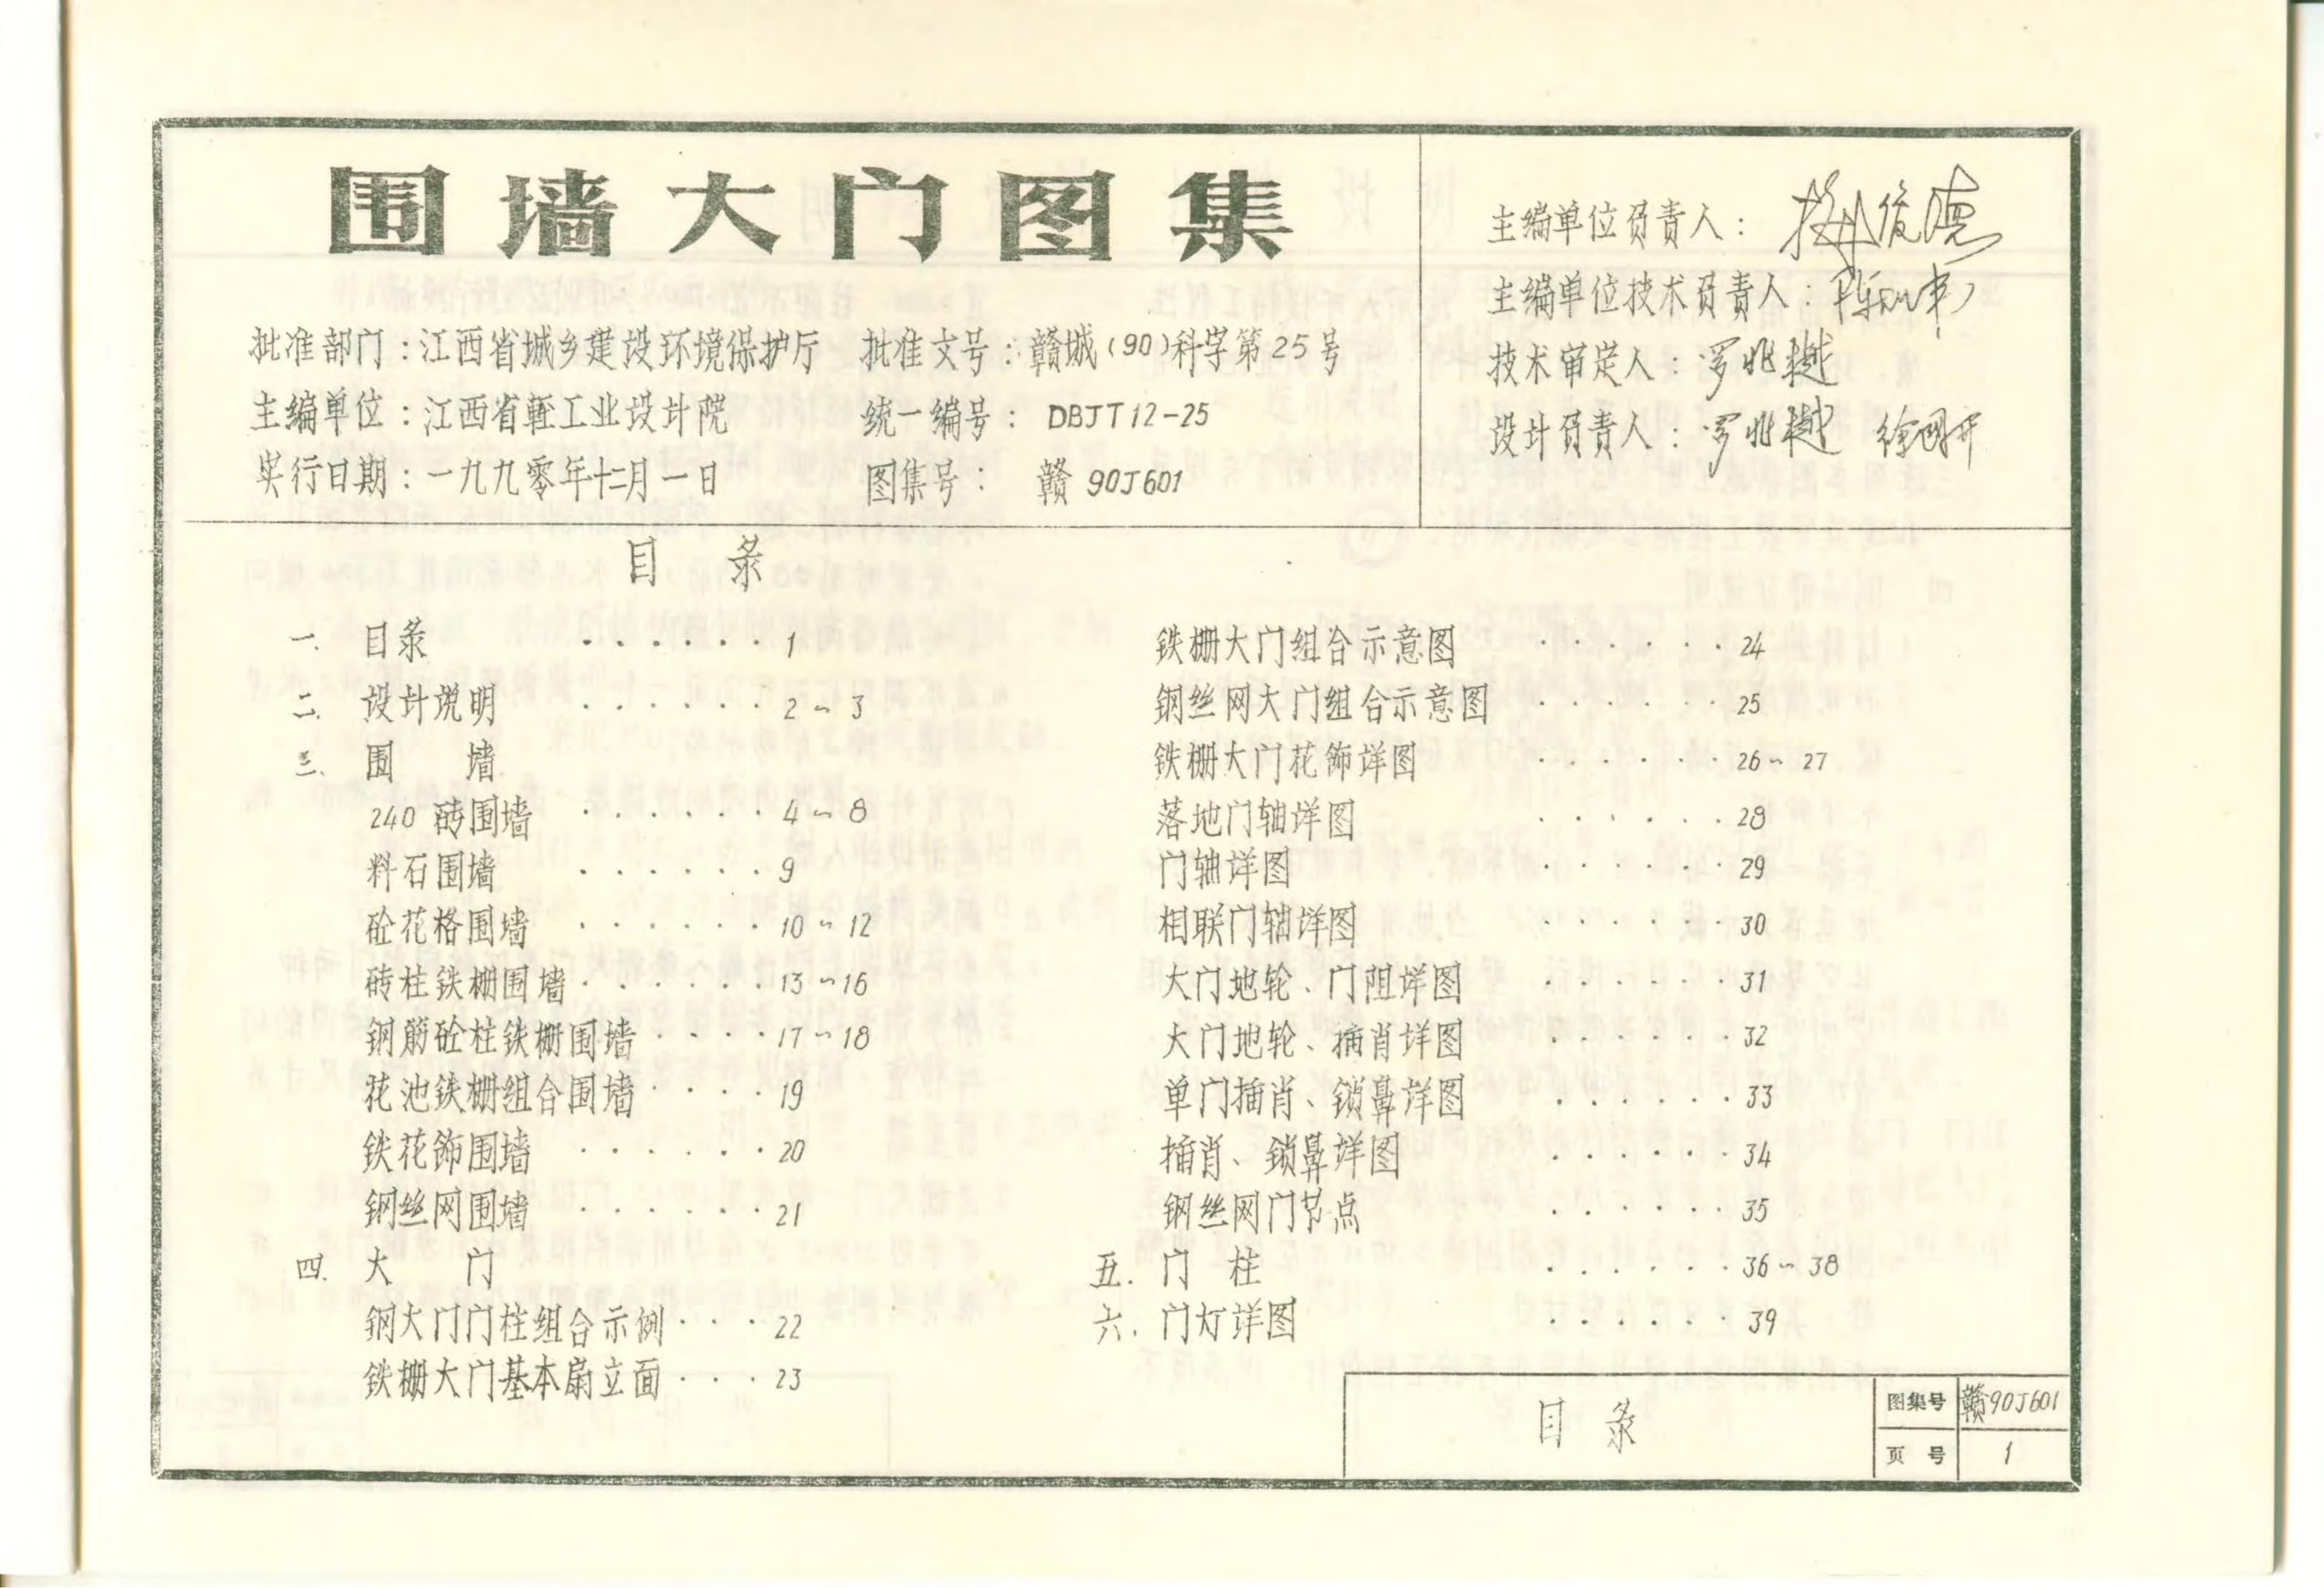 围墙大门图集
批准部门：江西省城乡建设环境保护厅 批准文号：赣城(90)科学第25号
主编单位：江西省轻工业设计院 统一编号： DBJT12-25
实行日期：一九九零年十二月一日 图集号： 赣90J601
主编单位负责人：
主编单位技术负责人：
技术审定人：罗兆樾
设计负责人：罗兆樾 徐国开
目 录
一. 目录 ······1
二. 设计说明 ······2~3
三. 围 墙
240 砖围墙 ······4~8
料石围墙 ······9
砼花格围墙 ······10~12
砖柱铁栅围墙 ······13~16
钢筋砼柱铁栅围墙 ····17~18
花池铁栅组合围墙 ····19
铁花饰围墙 ······20
钢丝网围墙 ······21
四. 大 门
钢大门门柱组合示例 ···22
铁栅大门基本扇立面 ···23
铁栅大门组合示意图 ······24
钢丝网大门组合示意图 ······25
铁栅大门花饰详图 ······26~27
落地门轴详图 ······28
门轴详图 ······29
相联门轴详图 ······30
大门地轮、门阻详图 ······31
大门地轮、插肖详图 ······32
单门插肖、锁鼻详图 ······33
插肖、锁鼻详图 ······34
钢丝网门节点 ······35
五. 门 柱 ······36~38
六. 门灯详图 ······39
目 录
图集号 赣90J601
页 号 1